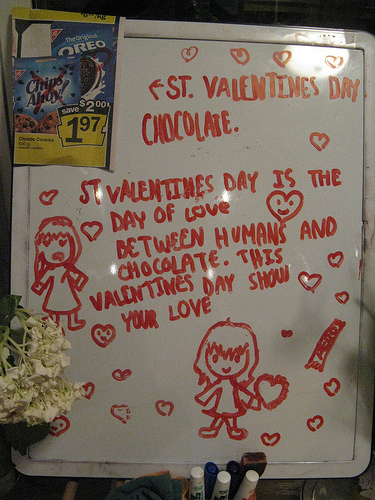 The Original
OREO
Chips Ahoy!
save $2.00
1.97
Christie Cookies
←ST. VALENTINES DAY
CHOCOLATE.
ST VALENTINES DAY IS THE
DAY OF LOVE
BETWEEN HUMANS AND
CHOCOLATE. THIS
VALENTINES DAY SHOW
YOUR LOVE